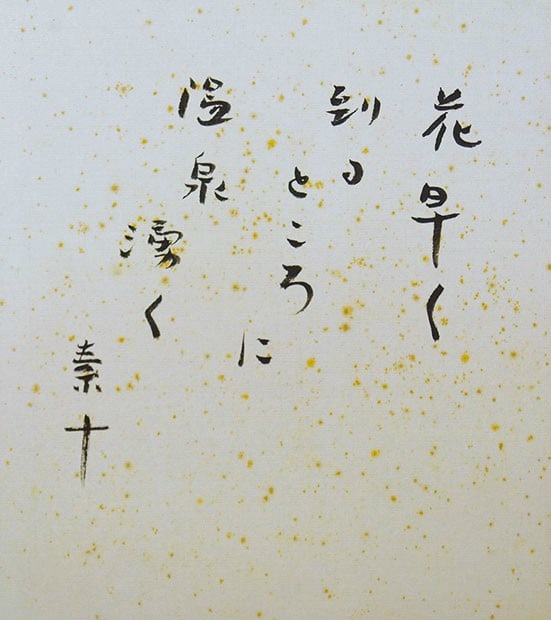 花早く
到るところに
温泉湧く
素十